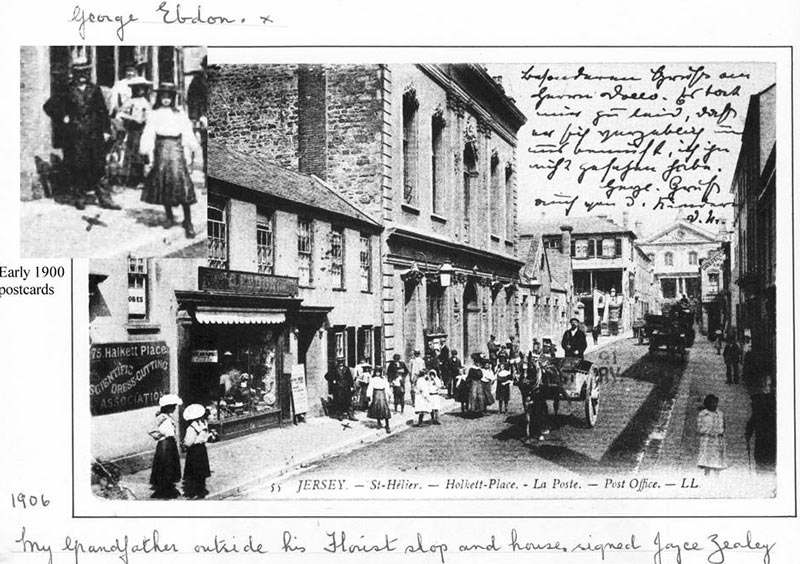 George Ebdon. x
Early 1900
postcards
besonderen Gruß an
Herrn
leid, daß
er sich vergeblich
bemüht, ich ihn
nicht gesehen habe.
Gruß
75. Halkett Place
SCIENTIFIC
DRESS-CUTTING
ASSOCIATION
55 JERSEY. — St-Hélier. — Halkett-Place. - La Poste. — Post Office. — LL
1906
My Grandfather outside his Florist shop and house, signed Joyce Zealey